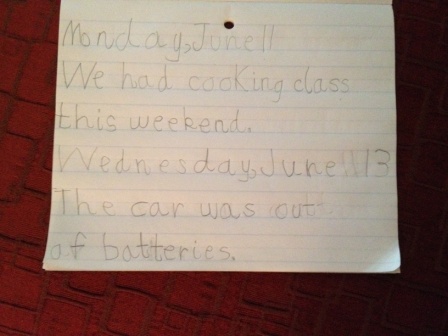 Monday, June 11
We had cooking class
this weekend.
Wednesday, June 13
The car was out
of batteries.